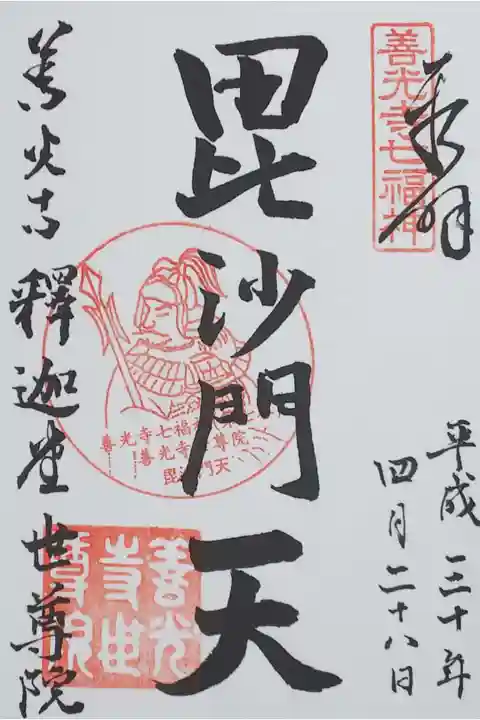 奉拝
善光寺七福神
平成三十年
四月二十八日
毘沙門天
善光寺七福神
善光寺世尊院
毘沙門天
善光寺釋迦堂世尊院
善光
寺世
尊院